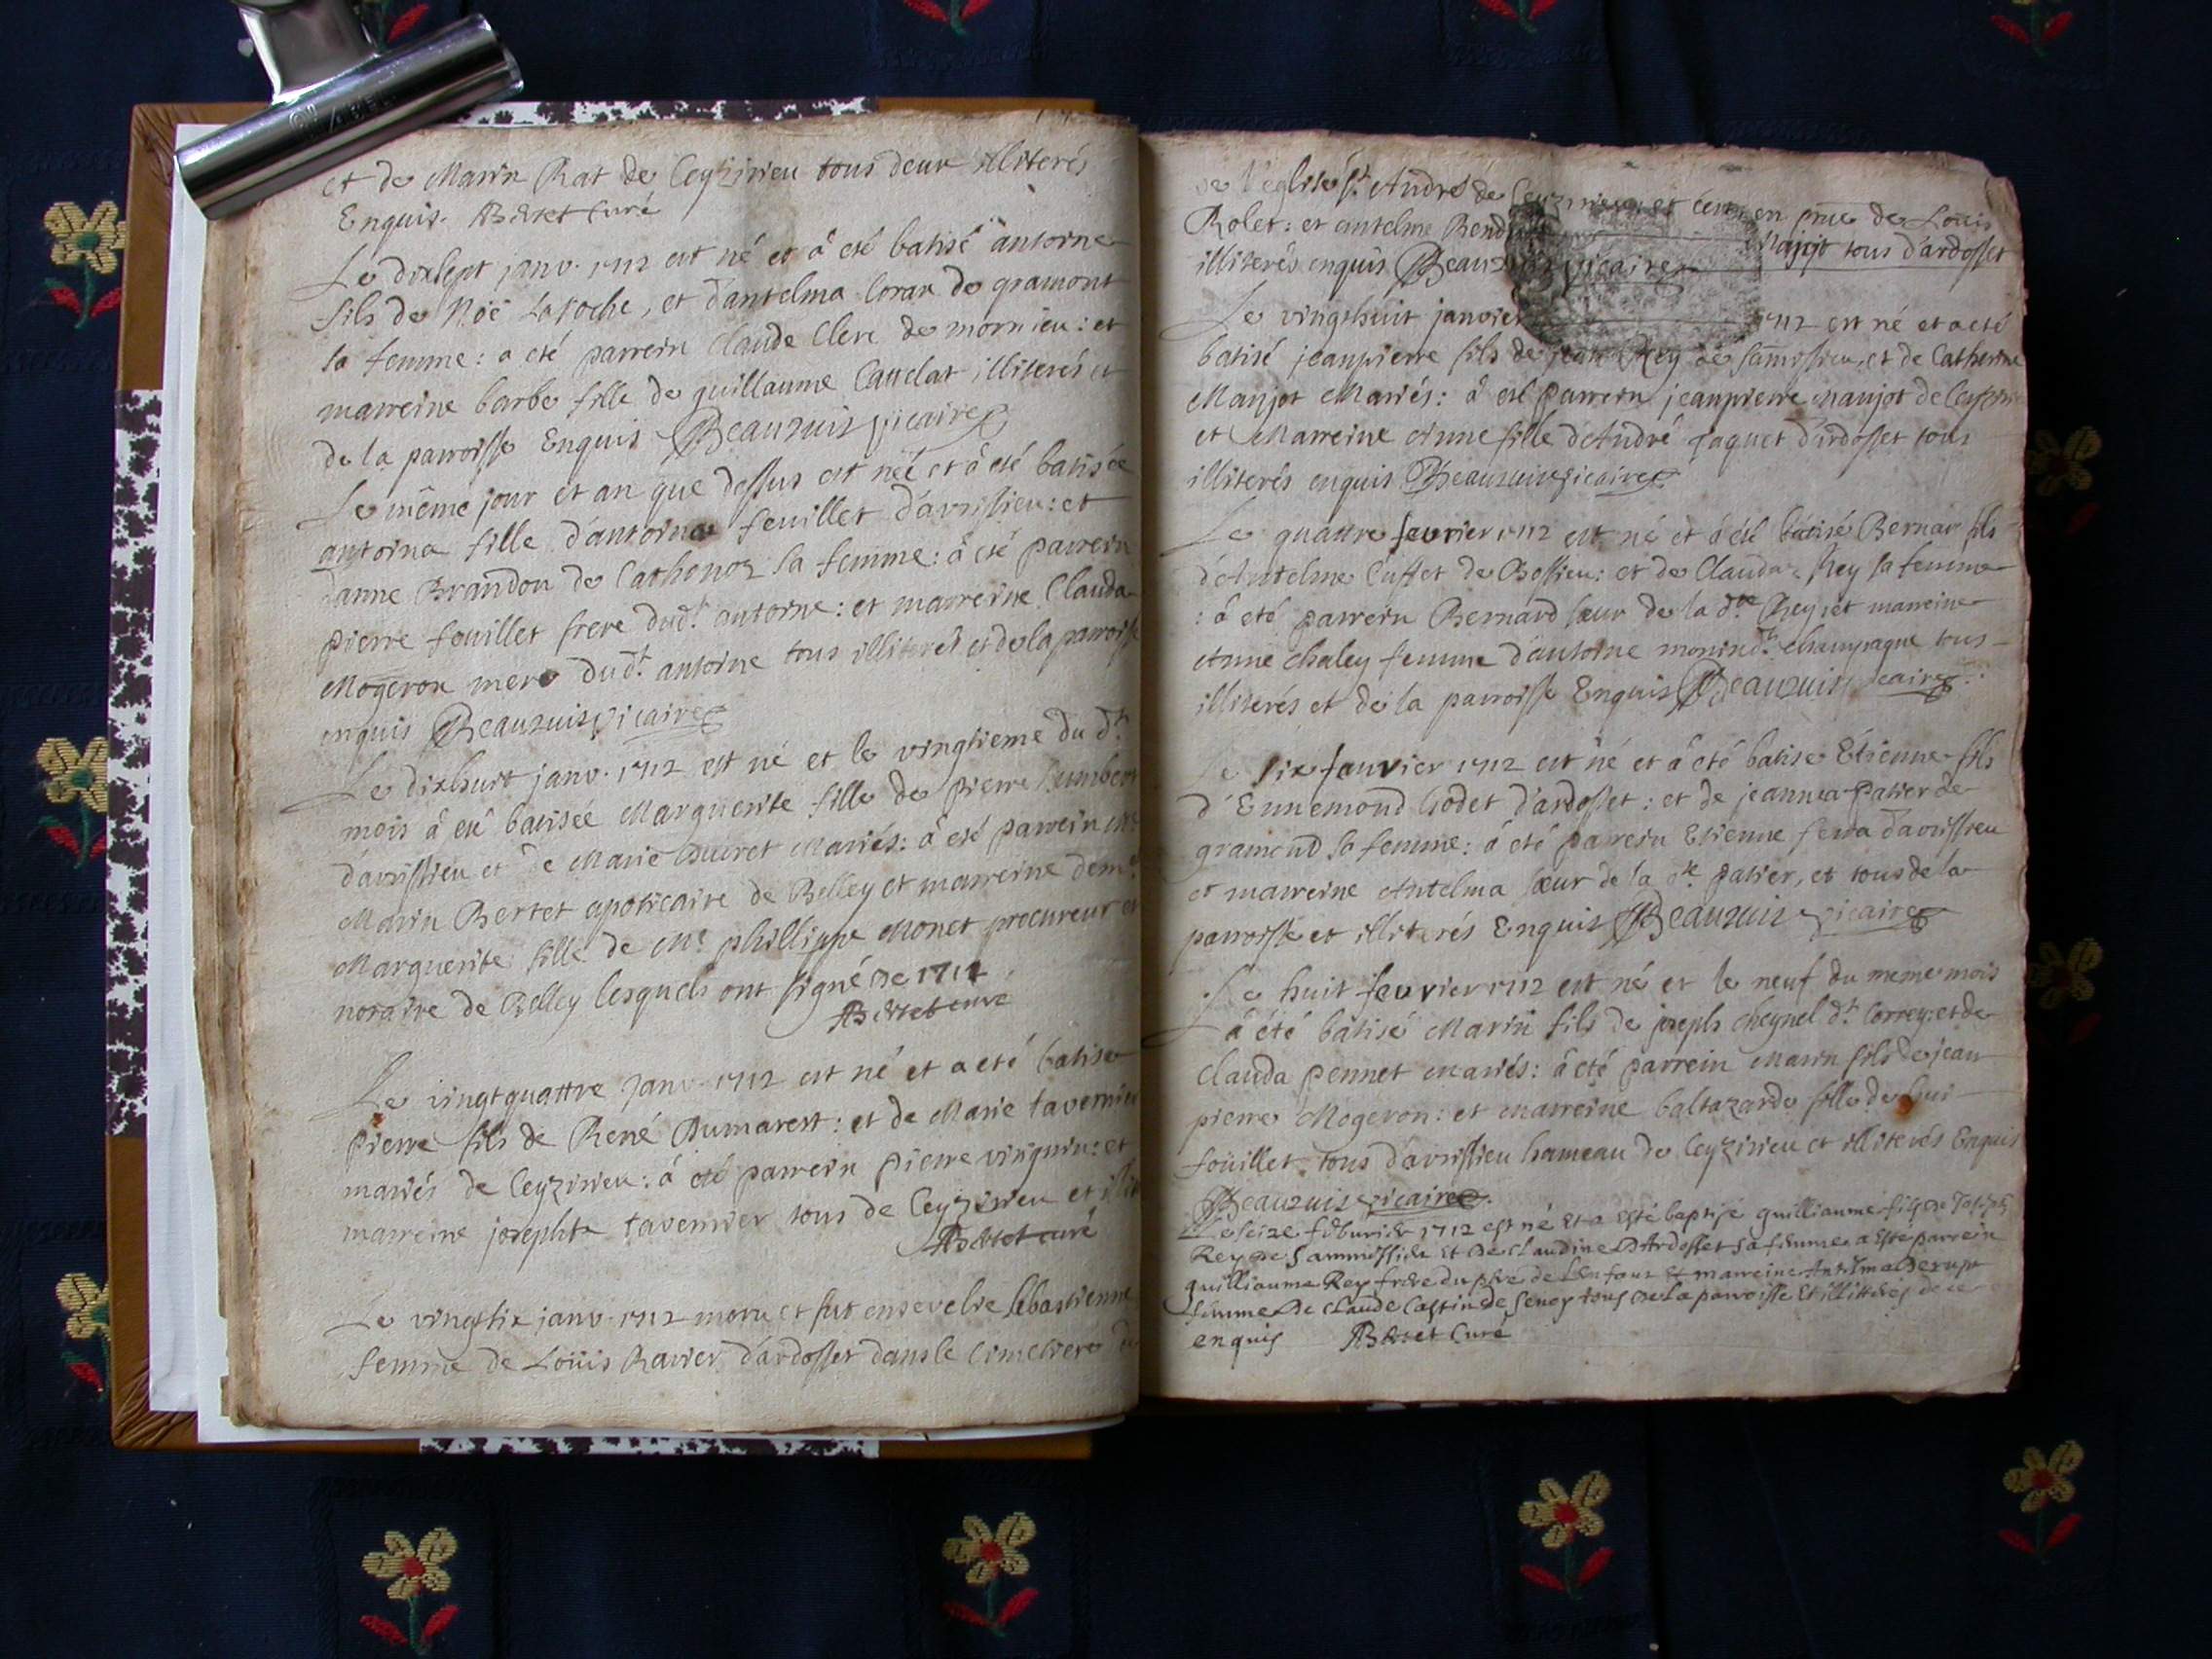 et de Marin Rat de Ceyzirieu tous deux illiterés
Enquis. Bertet curé
Le dixsept janv. 1712 est né et à eté batisé antoine
fils de Noë Laroche, et d'antelma Coran de gramont
sa femme: a eté parrein Claude Clerc de mornieu: et
marreine barbe fille de guillaume Caudat illiterés et
de la parroisse Enquis Beauzuis vicaire
Le même jour et an que dessus est née et à eté batisée
antoina fille d'antoine feuillet d'avrissieu: et
d'anne Brandon de Cathonoz sa femme: à eté parrein
pierre feuillet frere dud.t antoine: et marreine Clauda
Mogeron mere du d.t antoine tous illiterés et de la parroisse
enquis Beauzuis vicaire
Le dixhuit janv. 1712 est né et le vingtieme du d.t
mois à eté batisée Marguerite fille de pierre humbert
d'avrissieu et de Marie huiret Mariés: à eté parrein Mr
Marin Bertet apoticaire de Belley et marreine dem.le
Marguerite fille de Mr. phillippe Monet procureur et
notaire de Belley lesquels ont signé De 1712
Bertet curé
Le vingtquattre janv. 1712 est né et a eté batise
pierre fils de René Dumarest: et de Marie tavernier
mariés de Ceyzirieu: à eté parrein pierre vinguin: et
marreine josephte tavernier tous de Ceyzirieu et
Bertet curé
Le vingtsix janv. 1712 moru et fut ensevelie sebastienne
femme de Loüis Ravier d'ardosset dans le cimetiere
de l'eglise St. André de Ceyzirieu: et ce en prñce de Louis
Rolet: et antelme tous d'ardosset
illiterés enquis Beauzuis vicaire
Le vingthuit janvier 1712 est né et a eté
batisé jeanpierre fils de jean Rey de sammissieu, et de Catherine
Manjot Mariés: à eté parrein jeanpierre manjot de
et Marreine Anne fille d'André jaquet d'ardosset tous
illiterés enquis Beauzuis vicaire
Le quattre fevrier 1712 est né et à eté batisé Bernar fils
d'Antelme Cuffet de Bossieu: et de Clauda Rey sa femme
: à eté parrein Bernard sœur de la d.te Rey: et marreine
Anne Chaley femme d'antoine monin d.t champagne tous
illiterés et de la parroisse Enquis Beauzuis vicaire
Le six fevrier 1712 est né et à eté batisé Etienne fils
d'Ennemond Godet d'ardosset: et de jeanna Patier de
gramond sa femme: à eté parrein Etienne serra d'avrissieu
et marreine Antelma sœur de la d.te patier, et tous de la
parroisse et illiterés Enquis Beauzuis vicaire
Le huit fevrier 1712 est né et le neuf du meme mois
à été batisé Marin fils de joseph cheynel d.t Correy: et de
Clauda pennet mariés: à eté parrein Marin fils de jean
pierre Mogeron: et marreine baltazarde fille de
foüillet tous d'avrissieu hameau de Ceyzirieu et illiterés Enquis
Beauzuis vicaire
Le seize feburier 1712 est né et a esté baptise guilliaume fils de Joseph
Rey de Sammissieu et de claudine D'Ardosset sa femme a esté parrein
guilliaume Rey frere du pere de Lenfant et marreine
femme De claude Castin de Senoy tous de la parroisse et illitterés de ce
enquis Bertet Curé